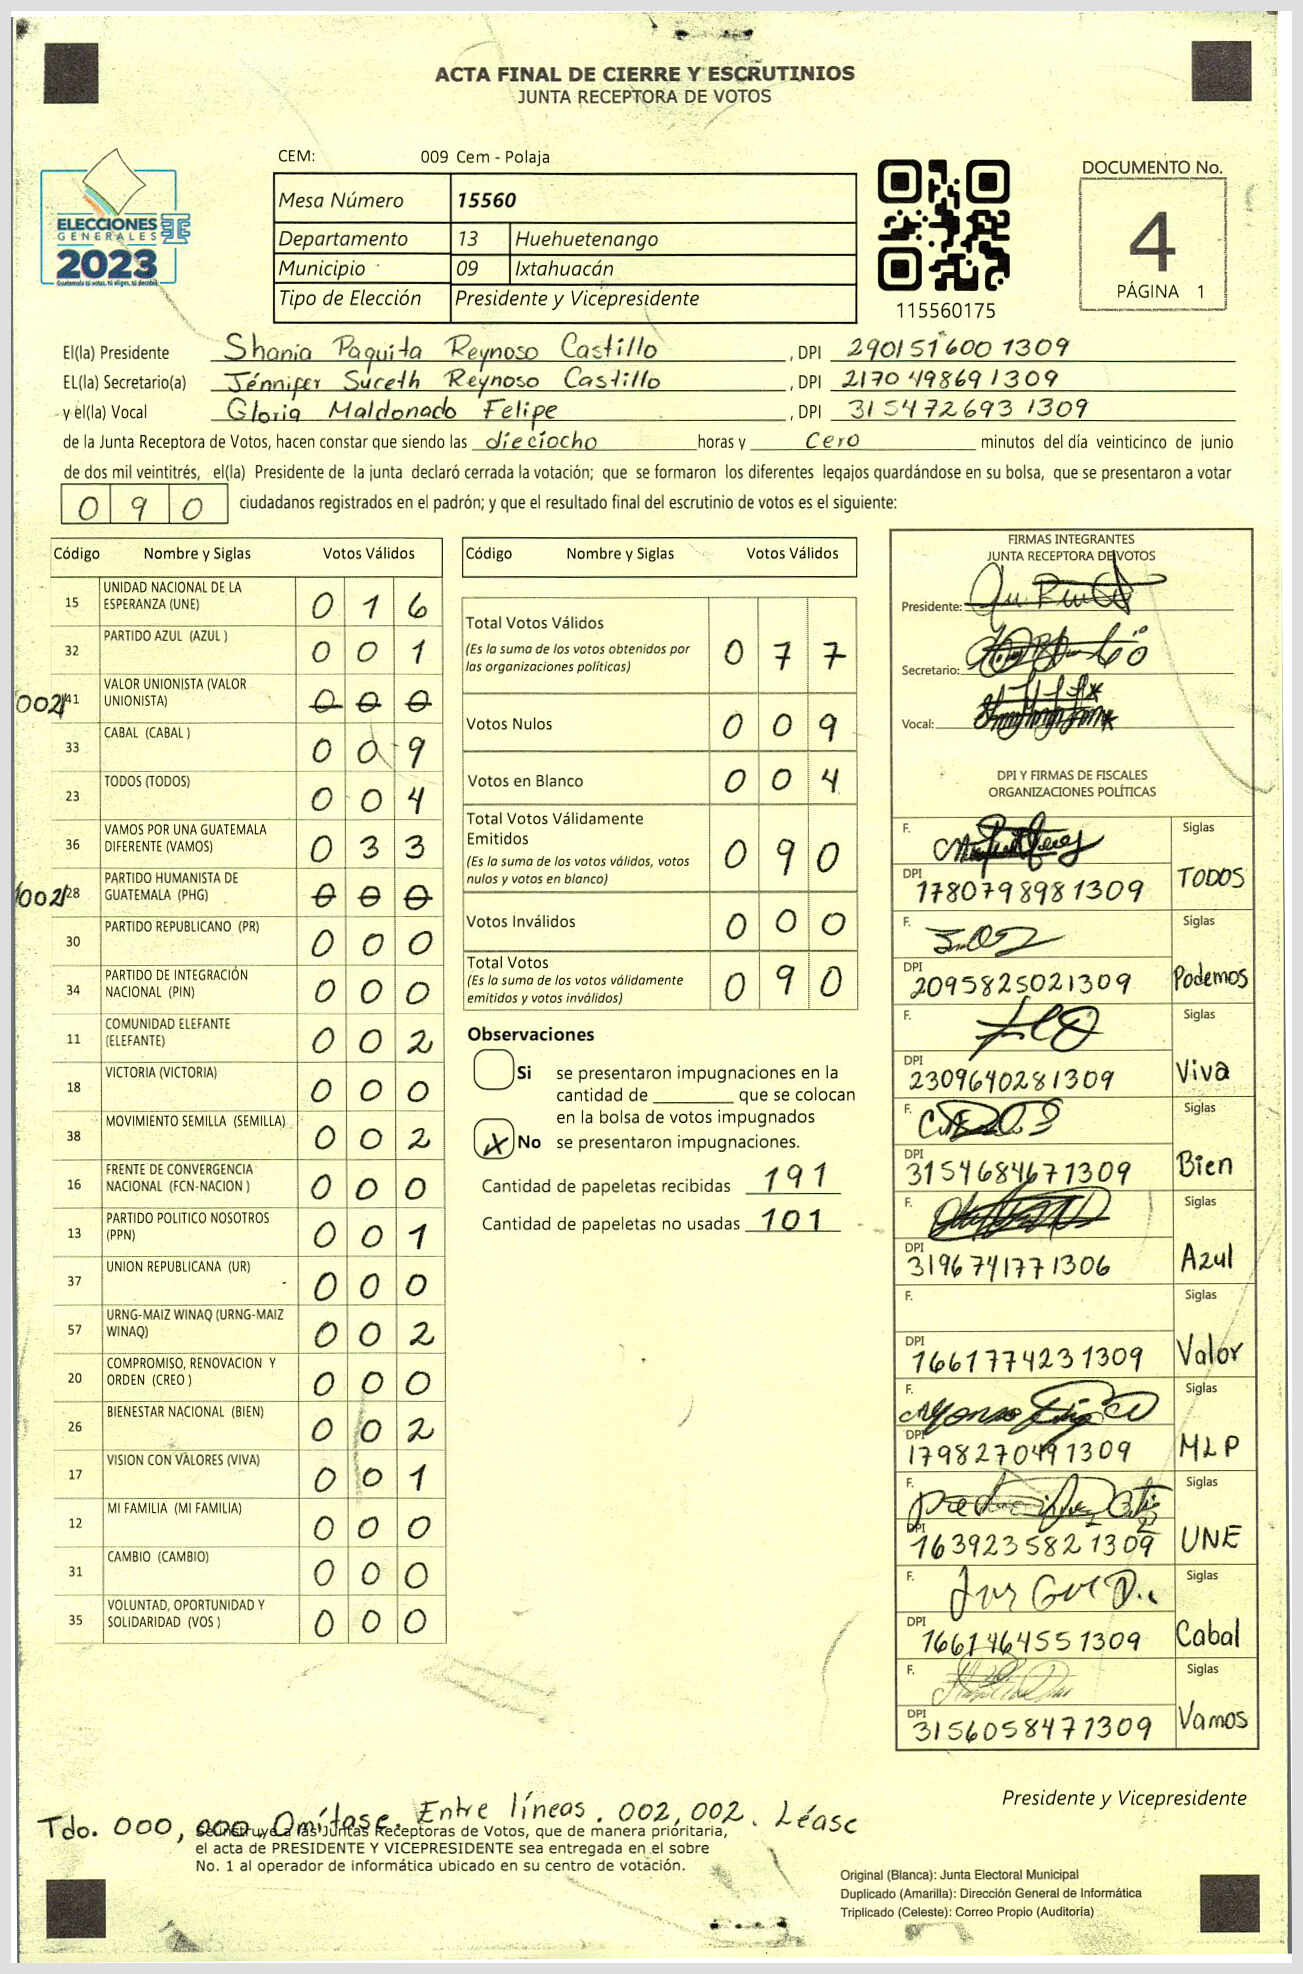 ACTA FINAL DE CIERRE Y ESCRUTINIOS
JUNTA RECEPTORA DE VOTOS
CEM: 009 Cem - Polaja
ELECCIONES
GENERALES
2023
Guatemala tú votas, tú eliges, tú decides
Mesa Número 15560
Departamento 13 Huehuetenango
Municipio 09 Ixtahuacán
Tipo de Elección Presidente y Vicepresidente
115560175
DOCUMENTO No.
4
PÁGINA 1
El(la) Presidente Shania Paquita Reynoso Castillo , DPI 290151600 1309
EL(la) Secretario(a) Jénnifer Suceth Reynoso Castillo , DPI 2170 49869 1309
y el(la) Vocal Gloria Maldonado Felipe , DPI 315472693 1309
de la Junta Receptora de Votos, hacen constar que siendo las dieciocho horas y cero minutos del día veinticinco de junio
de dos mil veintitrés, el(la) Presidente de la junta declaró cerrada la votación; que se formaron los diferentes legajos guardándose en su bolsa, que se presentaron a votar
0 9 0 ciudadanos registrados en el padrón; y que el resultado final del escrutinio de votos es el siguiente:
Código Nombre y Siglas Votos Válidos
15 UNIDAD NACIONAL DE LA ESPERANZA (UNE) 0 1 6
32 PARTIDO AZUL (AZUL ) 0 0 1
002/ 41 VALOR UNIONISTA (VALOR UNIONISTA) 0 0 0
33 CABAL (CABAL ) 0 0 9
23 TODOS (TODOS) 0 0 4
36 VAMOS POR UNA GUATEMALA DIFERENTE (VAMOS) 0 3 3
002/ 28 PARTIDO HUMANISTA DE GUATEMALA (PHG) 0 0 0
30 PARTIDO REPUBLICANO (PR) 0 0 0
34 PARTIDO DE INTEGRACIÓN NACIONAL (PIN) 0 0 0
11 COMUNIDAD ELEFANTE (ELEFANTE) 0 0 2
18 VICTORIA (VICTORIA) 0 0 0
38 MOVIMIENTO SEMILLA (SEMILLA) 0 0 2
16 FRENTE DE CONVERGENCIA NACIONAL (FCN-NACION ) 0 0 0
13 PARTIDO POLITICO NOSOTROS (PPN) 0 0 1
37 UNION REPUBLICANA (UR) 0 0 0
57 URNG-MAIZ WINAQ (URNG-MAIZ WINAQ) 0 0 2
20 COMPROMISO, RENOVACION Y ORDEN (CREO ) 0 0 0
26 BIENESTAR NACIONAL (BIEN) 0 0 2
17 VISION CON VALORES (VIVA) 0 0 1
12 MI FAMILIA (MI FAMILIA) 0 0 0
31 CAMBIO (CAMBIO) 0 0 0
35 VOLUNTAD, OPORTUNIDAD Y SOLIDARIDAD (VOS ) 0 0 0
Código Nombre y Siglas Votos Válidos
Total Votos Válidos 0 7 7
(Es la suma de los votos obtenidos por
las organizaciones políticas)
Votos Nulos 0 0 9
Votos en Blanco 0 0 4
Total Votos Válidamente
Emitidos 0 9 0
(Es la suma de los votos válidos, votos
nulos y votos en blanco)
Votos Inválidos 0 0 0
Total Votos 0 9 0
(Es la suma de los votos válidamente
emitidos y votos inválidos)
Observaciones
Si se presentaron impugnaciones en la
cantidad de ________ que se colocan
en la bolsa de votos impugnados
X No se presentaron impugnaciones.
Cantidad de papeletas recibidas 191
Cantidad de papeletas no usadas 101
FIRMAS INTEGRANTES
JUNTA RECEPTORA DE VOTOS
Presidente:
Secretario:
Vocal:
DPI Y FIRMAS DE FISCALES
ORGANIZACIONES POLÍTICAS
F. Siglas
DPI 1780798981309 TODOS
F. Siglas
DPI 2095825021309 Podemos
F. Siglas
DPI 2309640281309 Viva
F. Siglas
DPI 3154684671309 Bien
F. Siglas
DPI 3196741771306 Azul
F. Siglas
DPI 1661774231309 Valor
F. Siglas
DPI 1798270491309 MLP
F. Siglas
DPI 1639235821309 UNE
F. Siglas
DPI 1661464551309 Cabal
F. Siglas
DPI 3156058471309 Vamos
Presidente y Vicepresidente
Tdo. 000, 000. Omítase. Entre líneas. 002, 002. Léase
Se instruye a las Juntas Receptoras de Votos, que de manera prioritaria,
el acta de PRESIDENTE Y VICEPRESIDENTE sea entregada en el sobre
No. 1 al operador de informática ubicado en su centro de votación.
Original (Blanca): Junta Electoral Municipal
Duplicado (Amarilla): Dirección General de Informática
Triplicado (Celeste): Correo Propio (Auditoría)